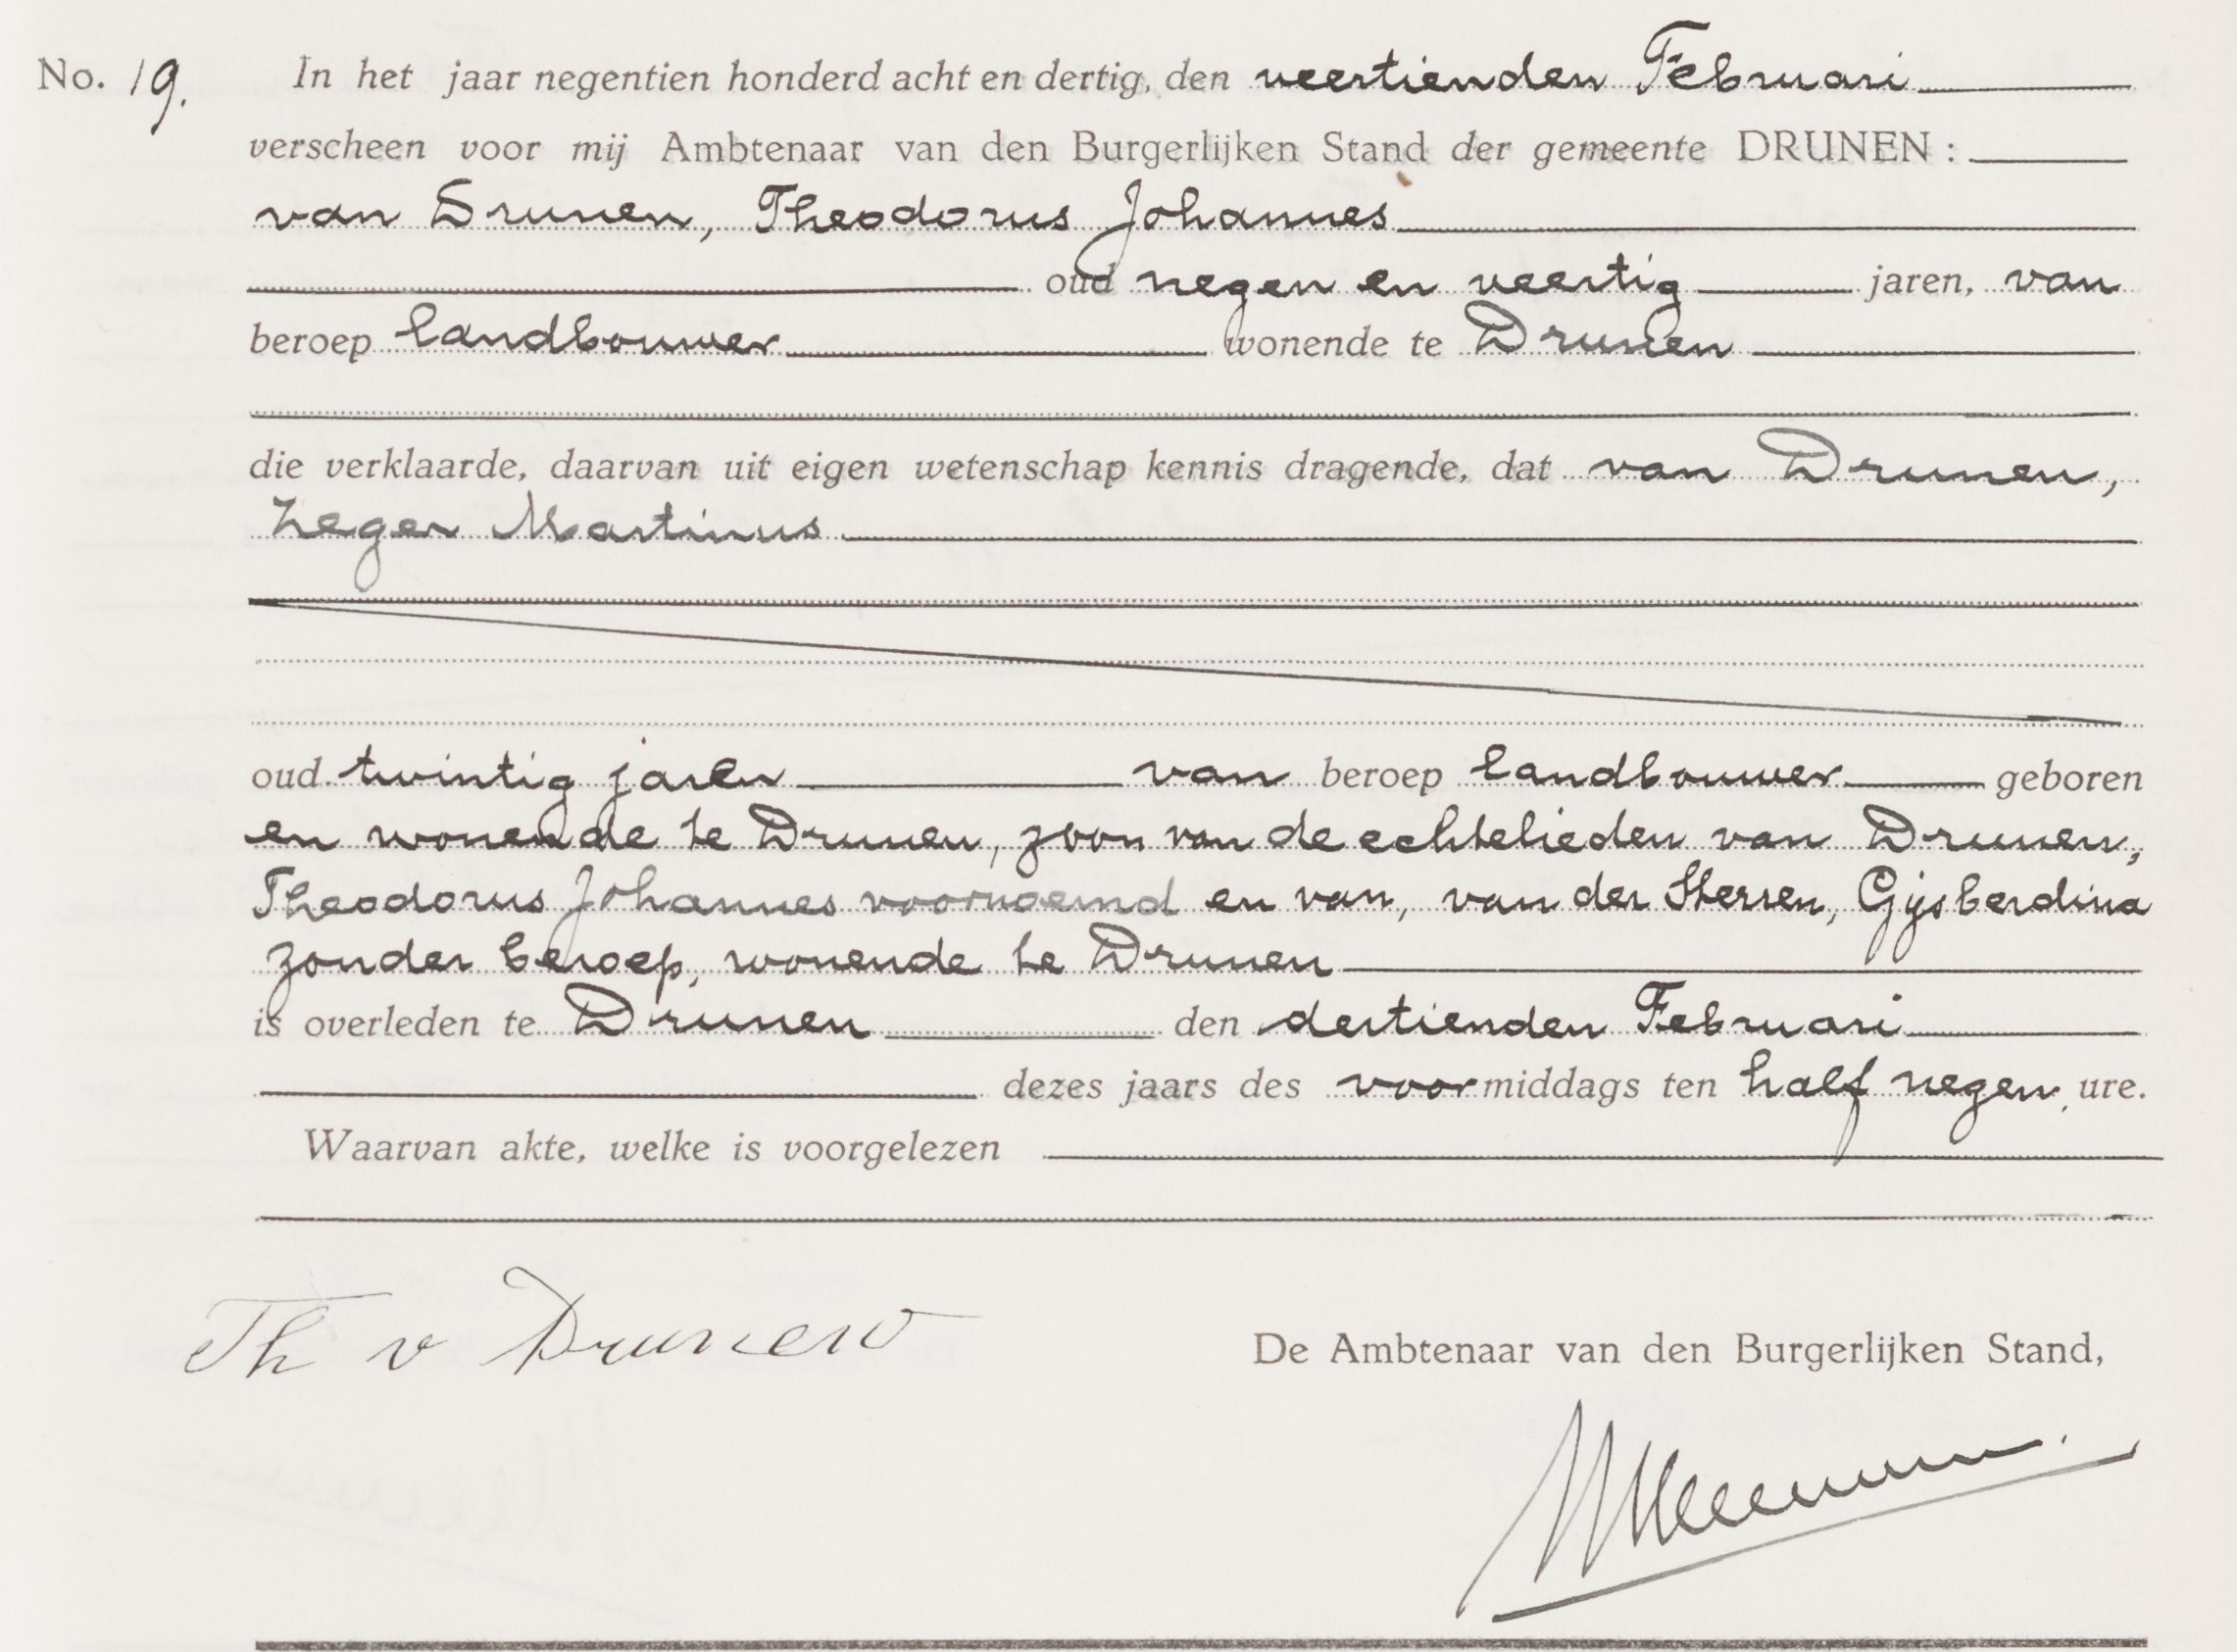 No. 19. In het jaar negentien honderd acht en dertig, den veertienden Februari
verscheen voor mij Ambtenaar van den Burgerlijken Stand der gemeente DRUNEN :
van Drunen, Theodorus Johannes
oud negen en veertig jaren, van
beroep landbouwer wonende te Drunen
die verklaarde, daarvan uit eigen wetenschap kennis dragende, dat van Drunen,
Zeger Martinus
oud twintig jaren van beroep landbouwer geboren
en wonende te Drunen, zoon van de echtelieden van Drunen,
Theodorus Johannes voornoemd en van, van der Sterren, Gijsberdina
zonder beroep, wonende te Drunen
is overleden te Drunen den dertienden Februari
dezes jaars des voormiddags ten half negen ure.
Waarvan akte, welke is voorgelezen
Th v Drunen
De Ambtenaar van den Burgerlijken Stand,